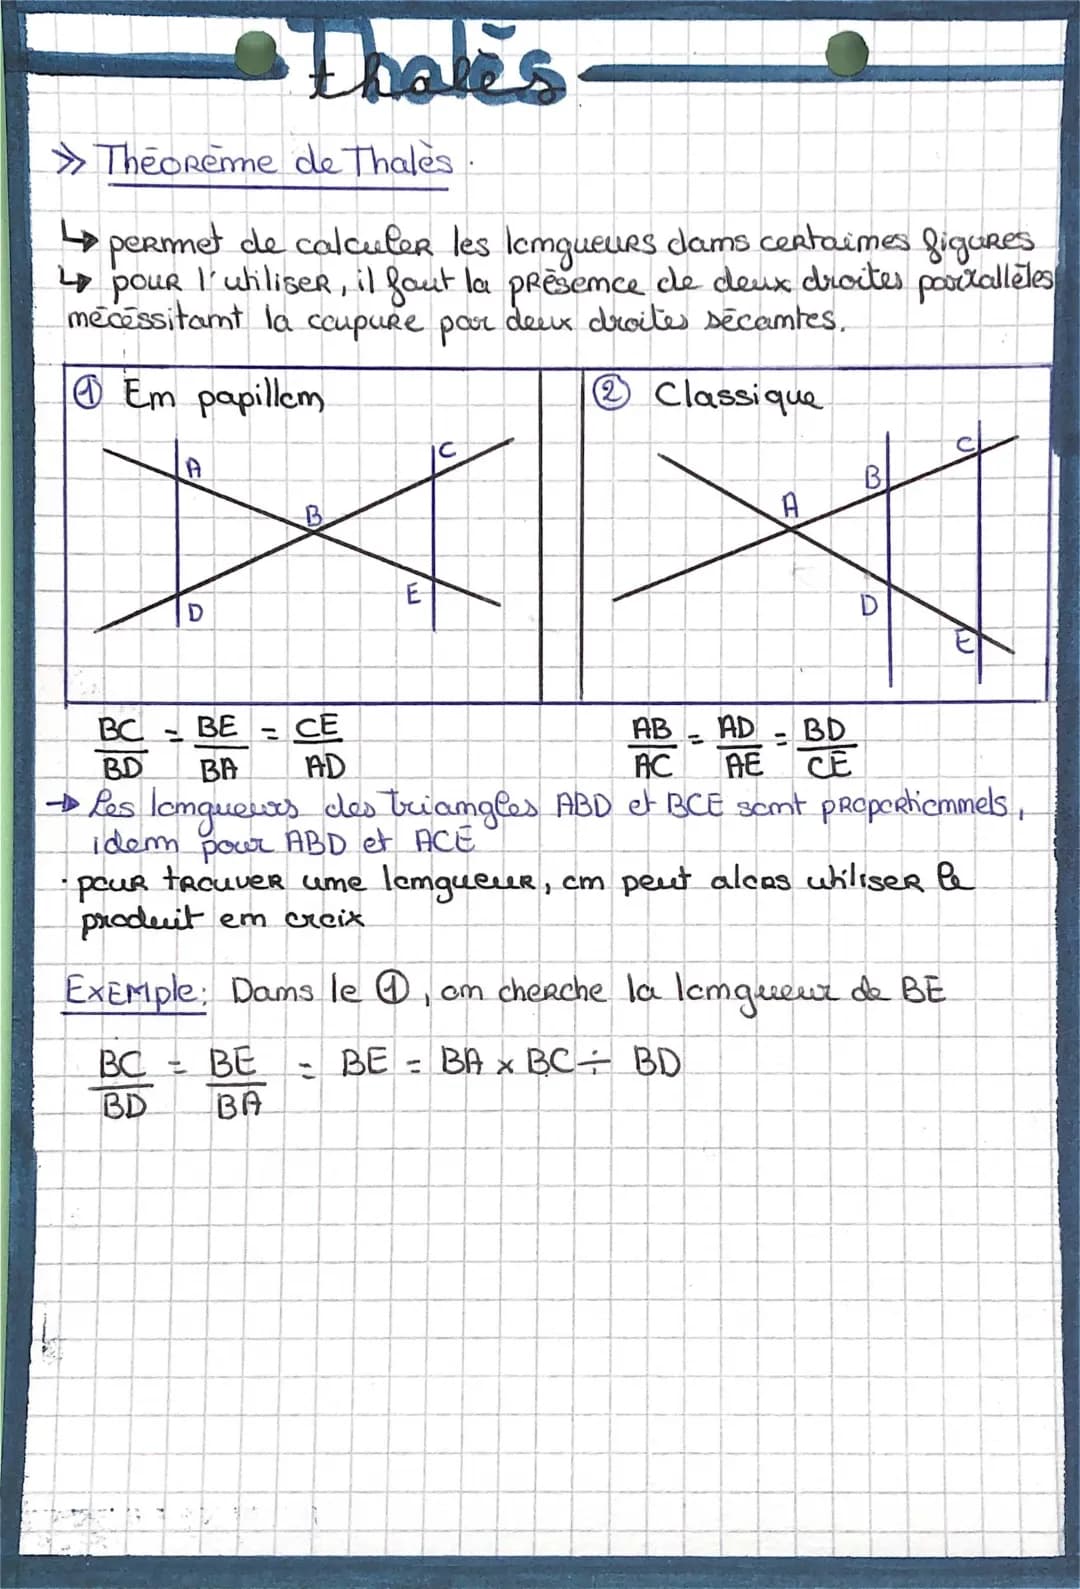 Thalès
» Théorème de Thalès.
↳ permet de calculer les longueurs dans certaines figures
↳ pour l'utiliser, il faut la présence de deux droites parallèles
nécéssitant la coupure par deux droites sécantes.
① En papillon
② Classique
A
B
C
D
E
A
B
C
D
E
BC/BD = BE/BA = CE/AD
AB/AC = AD/AE = BD/CE
→ Les longueurs des triangles ABD et BCE sont proportionnels,
idem pour ABD et ACE
· pour trouver une longueur, on peut alors utiliser le
produit en croix
Exemple: Dans le ①, on cherche la longueur de BE
BC/BD = BE/BA = BE = BA x BC ÷ BD